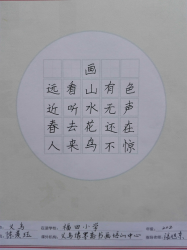 画
远看山有色
近听水无声
春去花还在
人来鸟不惊
义乌 福田小学
义乌 书画培训中心